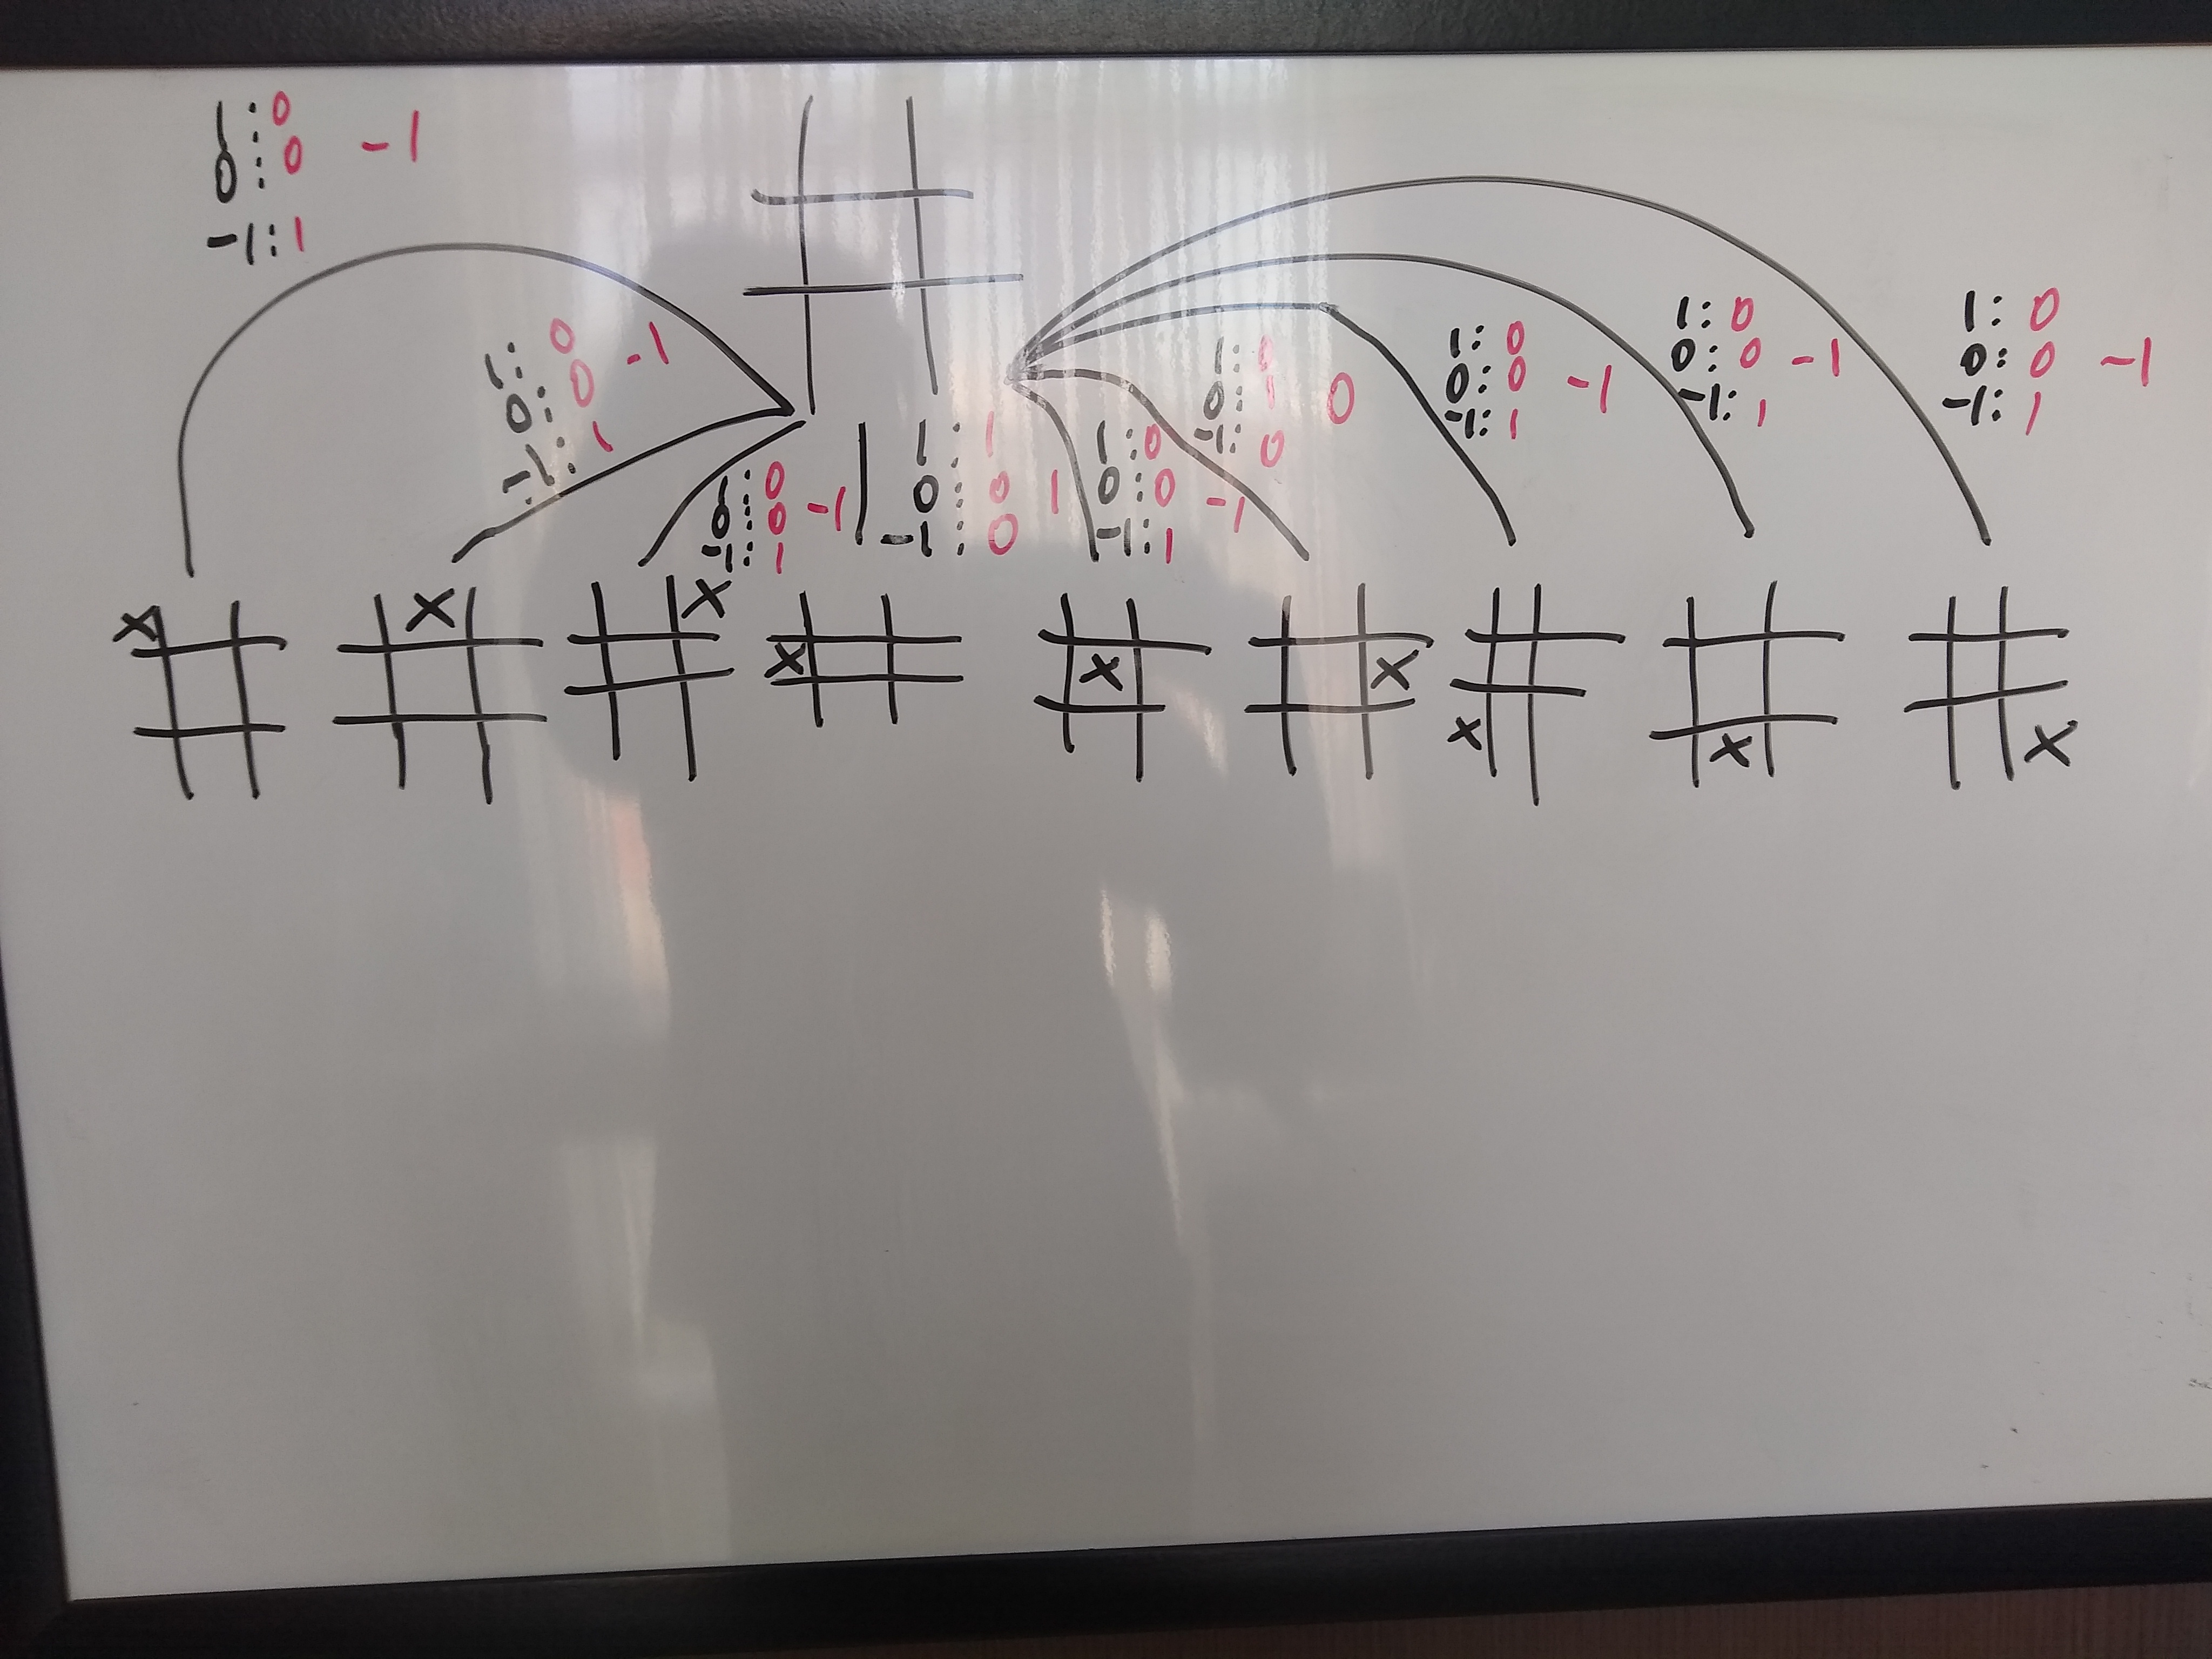 1:0
0:0 -1
-1:1
1:0
0:0 -1
-1:1
1:0
0:0 -1
-1:1
1:1
0:0 1
-1:0
1:0
0:0 -1
-1:1
1:
0:1 0
-1:0
1:0
0:0 -1
-1:1
1:0
0:0 -1
-1:1
1:0
0:0 -1
-1:1
X
X
X
X
X
X
X
X
X